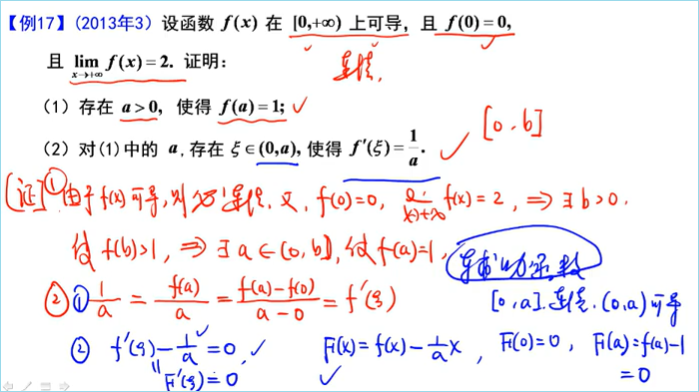 【例17】(2013年3) 设函数 f(x) 在 [0,+∞) 上可导, 且 f(0)=0,
且 lim_{x→+∞} f(x)=2. 证明:
连续.
(1) 存在 a>0, 使得 f(a)=1;
[0, b]
(2) 对(1)中的 a, 存在 ξ∈(0,a), 使得 f′(ξ)=1/a.
[证] ① 由于f(x)可导, 则必连续. 又 f(0)=0, lim_{x→+∞} f(x)=2, ⇒ ∃ b>0.
使 f(b)>1, ⇒ ∃ a∈(0, b], 使 f(a)=1,
辅助函数
② ① 1/a = f(a)/a = (f(a)-f(0))/(a-0) = f′(ξ)
[0,a]连续.(0,a)可导
② f′(ξ)-1/a=0, F(x)=f(x)-1/a x, F(0)=0, F(a)=f(a)-1
F′(ξ)=0 =0